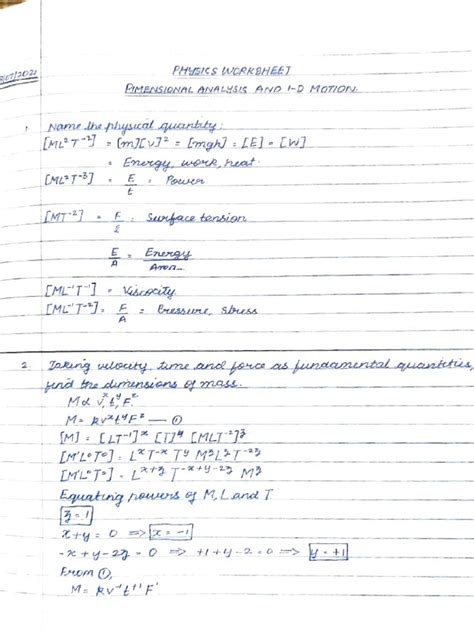 PHYSICS WORKSHEET
DIMENSIONAL ANALYSIS AND 1-D MOTION
1. Name the physical quantity:
[ML²T⁻²] = [m][v]² = [mgh] = [E] = [W]
= Energy, work, heat.
[ML²T⁻³] = E/t = Power
[MT⁻²] = F/l = Surface tension
E/A = Energy/Area
[ML⁻¹T⁻¹] = Viscosity
[ML⁻¹T⁻²] = F/A = Pressure, Stress
2. Taking velocity, time and force as fundamental quantities,
find the dimensions of mass.
M ∝ vˣtʸFᶻ
M = kvˣtʸFᶻ — ①
[M] = [LT⁻¹]ˣ [T]ʸ [MLT⁻²]ᶻ
[M¹L⁰T⁰] = LˣT⁻ˣ Tʸ MᶻLᶻT⁻²ᶻ
[M¹L⁰T⁰] = Lˣ⁺ᶻ T⁻ˣ⁺ʸ⁻²ᶻ Mᶻ
Equating powers of M, L and T.
z = 1
x + y = 0 ⇒ x = -1
-x + y - 2z = 0 ⇒ +1 + y - 2 = 0 ⇒ y = +1
From ①,
M = kv⁻¹t⁺¹F¹